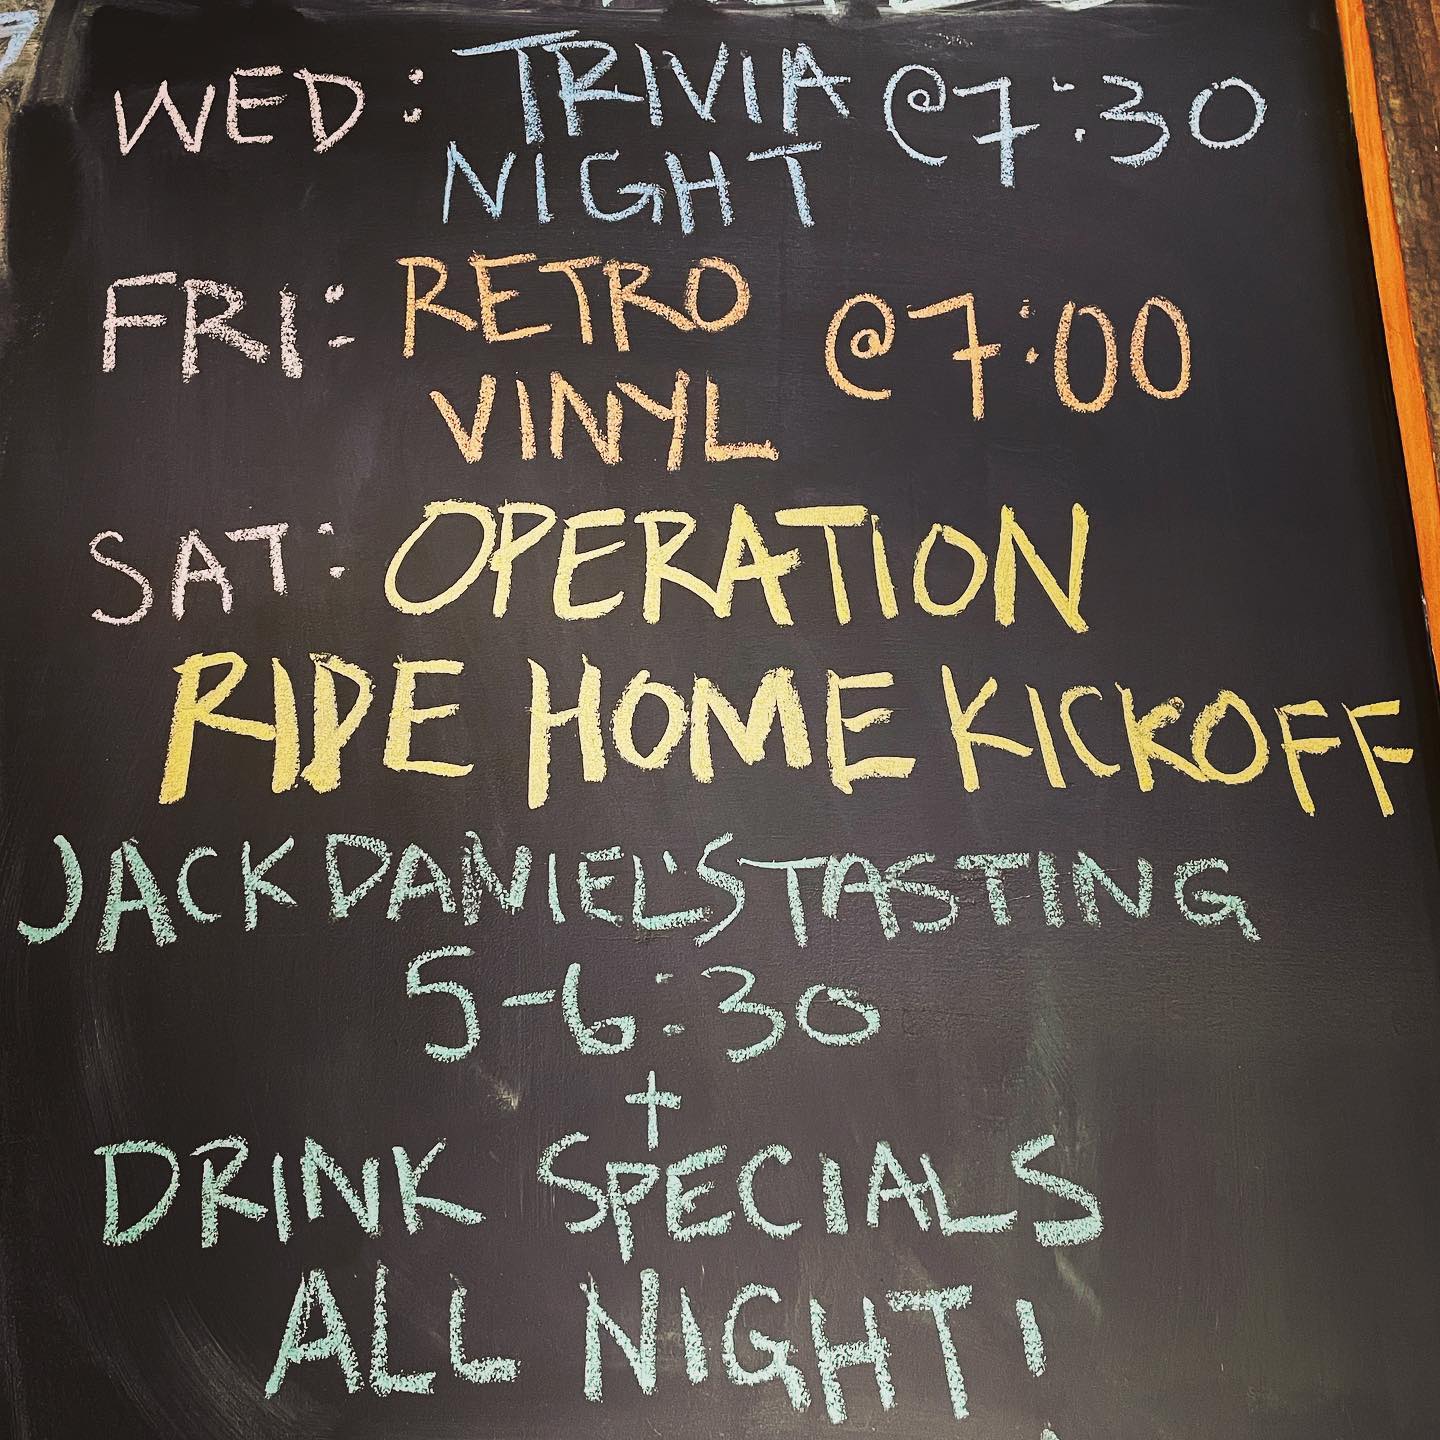 WED: TRIVIA @7:30
NIGHT
FRI: RETRO @7:00
VINYL
SAT: OPERATION
RIDE HOME KICKOFF
JACK DANIEL'S TASTING
5-6:30
+
DRINK SPECIALS
ALL NIGHT!